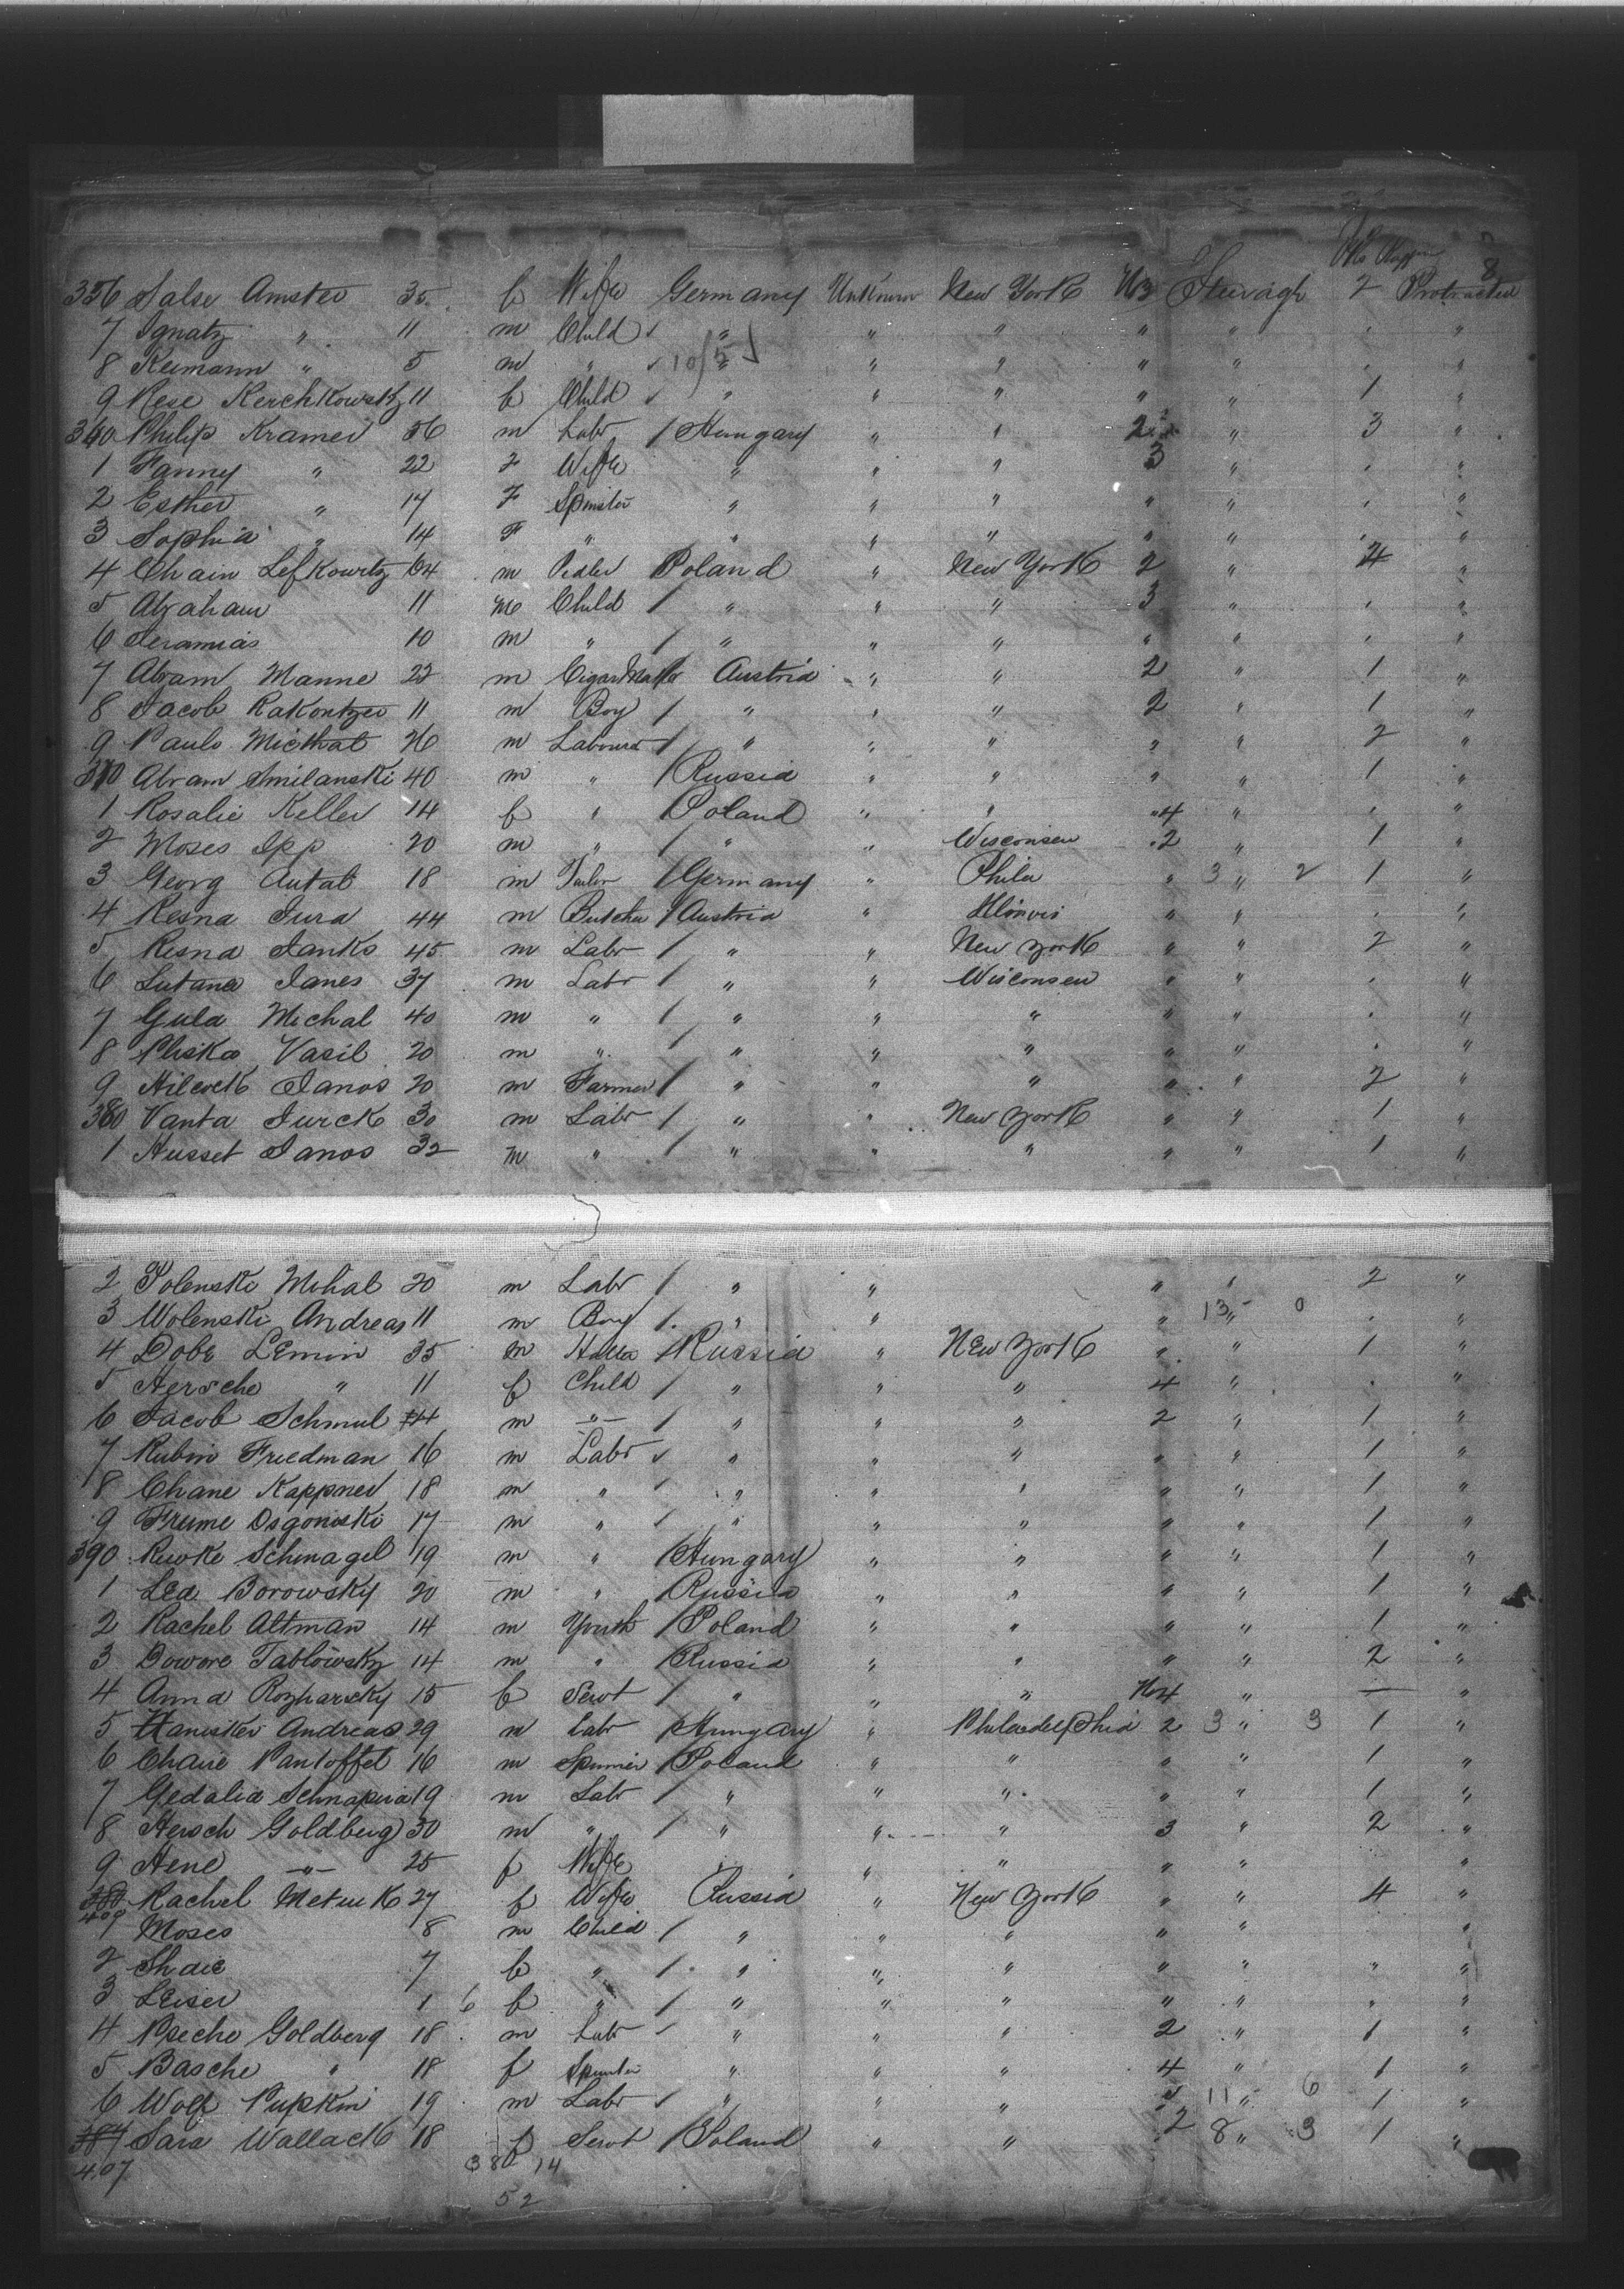 8
356 Salse Amster 35 f Wife Germany Unknown New York No 3 Steerage 2 Protracted
7 Ignatz " 11 m Child " " " " " "
8 Keimann " 5 m " 10/5 " " " " " "
9 Rese Kerchkowsky 11 f Child " " " " " 1 "
340 Philip Kramer 56 m Labr / Hungary " " 2 " 3 "
1 Fanny " 22 F Wife " " " 3 " "
2 Esther " 17 F Spinster " " " " " "
3 Sophia " 14 F " " " " " " "
4 Chain Lefkowitz 64 m Pedler Poland " New York 2 " 4 "
5 Abraham 11 m Child / " " " 3 " "
6 Jeramias 10 m " / " " " " " "
7 Abram Manne 22 m Cigar Maker Austria " " 2 " 1 "
8 Jacob Rakontzer 11 m Boy / " " " 2 " 1 "
9 Paulo Micthat 26 m Labourer / " " " " " 2 "
370 Abram Smilanski 40 m " / Russia " " " " 1 "
1 Rosalie Keller 14 f " / Poland " " 4 " "
2 Moses Ipp 20 m " / " " Wisconsen 2 " 1 "
3 Georg Autal 18 m Tailor / Germany " Phila " 3 " 2 1 "
4 Resna Jura 44 m Butcher / Austria " Illinois " " "
5 Resna Janko 45 m Labr / " " New York " " 2 "
6 Lutana Janes 37 m Labr / " " Wisconsen " " "
7 Gula Michal 40 m " / " " " " " "
8 Pliska Vasil 20 m " / " " " " " "
9 Hilcock Janos 20 m Farmer / " " " " " 2 "
380 Vanta Jurck 30 m Labr / " " New York " " 1 "
1 Husset Janos 32 m " / " " " " " 1 "
2 Polenski Mihal 20 m Labr / " " " " 2 "
3 Wolenski Andreas 11 m Boy / " " " 13 " 0 "
4 Dobe Lemin 35 m / Russia " New York " " 1 "
5 Hersche " 11 f Child / " " " 4 " "
6 Jacob Schmul 44 m " / " " " 2 " 1 "
7 Rubin Friedman 16 m Labr " " " " " 1 "
8 Chane Kappner 18 m " / " " " " " 1 "
9 Frume Osgoniski 17 m " / " " " " " 1 "
390 Rewke Schnagel 19 m " / Hungary " " " " 1 "
1 Lea Borowsky 20 m " / Russia " " " " 1 "
2 Rachel Altman 14 m Youth / Poland " " " " 1 "
3 Dowore Tablowsky 14 m " / Russia " " " " 2 "
4 Anna Rozharscky 15 f Servt / " " " No 4 " — "
5 Hanisker Andreas 29 m Labr / Hungary " Philadelphia 2 3 " 3 1 "
6 Chaie Pantoffel 16 m Spinner / Poland " " " " 1 "
7 Gedalia Schnapira 19 m Labr / " " " " " 1 "
8 Hersch Goldberg 30 m " / " " " 3 " 2 "
9 Hene " 25 f Wife " " " " "
400 Rachel Metuk 27 f Wife Russia " New York " " 4 "
1 Moses 8 m Child / " " " " " "
2 Shaie 7 f " / " " " " " " "
3 Leiser 1 6 f " / " " " " " " "
4 Pseche Goldberg 18 m Labr " " " 2 " 1 "
5 Basche " 18 f Spinster " " " 4 " 1 "
6 Wolf Pupkin 19 m Labr / " " " 11 " 6 1 "
387 Sara Wallack 18 f Servt / Poland " " 2 8 " 3 1 "
407
38 14
52